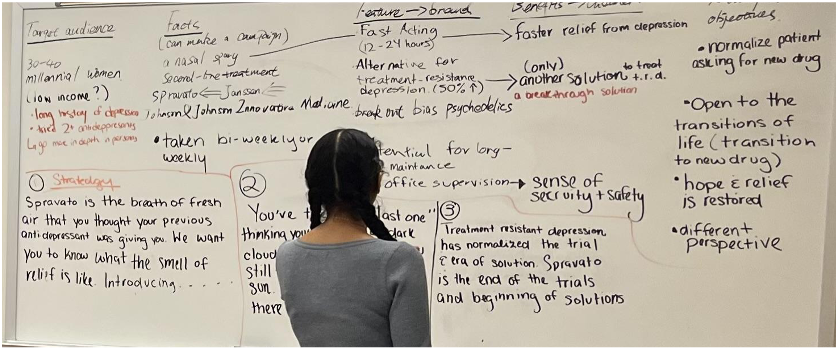 Target audience
30-40
millennial women
(low income?)
• long history of depression
• tried 2+ antidepressants
↳ go more in depth in persona
Facts
(can make a campaign)
a nasal spray
Second-line treatment
Spravato ⇐ Janssen ⇐
Johnson & Johnson Innovative Medicine
• taken bi-weekly or
weekly
Feature → brand
Fast Acting
(12-24 hours)
Alternative for
treatment-resistance
depression (50% ↑)
break out bias psychedelics
potential for long-
maintance
office supervision →
Benefits
faster relief from depression
(only)
another solution to treat
t.r.d.
a breakthrough solution
sense of
secruity + safety
objectives
• normalize patient
asking for new drug
• Open to the
transitions of
life (transition
to new drug)
• hope & relief
is restored
• different
perspective
① Stratedgy
Spravato is the breath of fresh
air that you thought your previous
antidepressant was giving you. We want
you to know what the smell of
relief is like. Introducing. . . . . .
②
You've last one"
thinking you dark
cloud
still
sun.
there
③
Treatment resistant depression
has normalized the trial
& era of solution. Spravato
is the end of the trials
and beginning of solutions